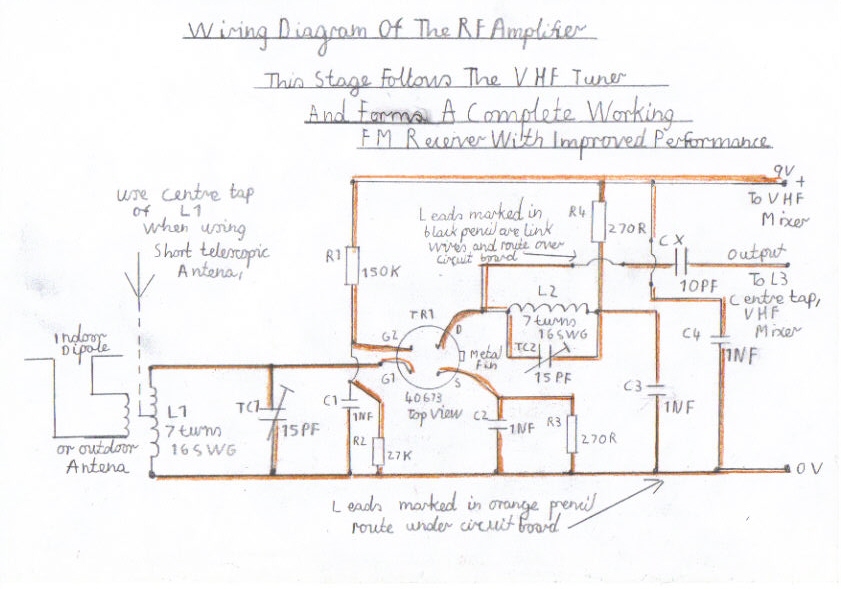 Wiring Diagram Of The RF Amplifier
This Stage Follows The VHF Tuner
And Forms A Complete Working
FM Receiver With Improved Performance
9V
+
To VHF
Mixer
use centre tap
of L1
when using
Short telescopic
Antena,
Leads marked in
black pencil are link
wires and route over
circuit board
R4
270R
R1
150K
CX
10PF
Output
To L3
Centre tap,
VHF
Mixer
TR1
G2
D
G1
S
40673
Top View
Metal
Fin
L2
7 turns
16SWG
TC2
15PF
C4
1NF
C3
1NF
Indoor
Dipole
or outdoor
Antena
L1
7 turns
16SWG
TC1
15PF
C1
1NF
R2
27K
C2
1NF
R3
270R
0V
Leads marked in orange prencil
route under circuit board